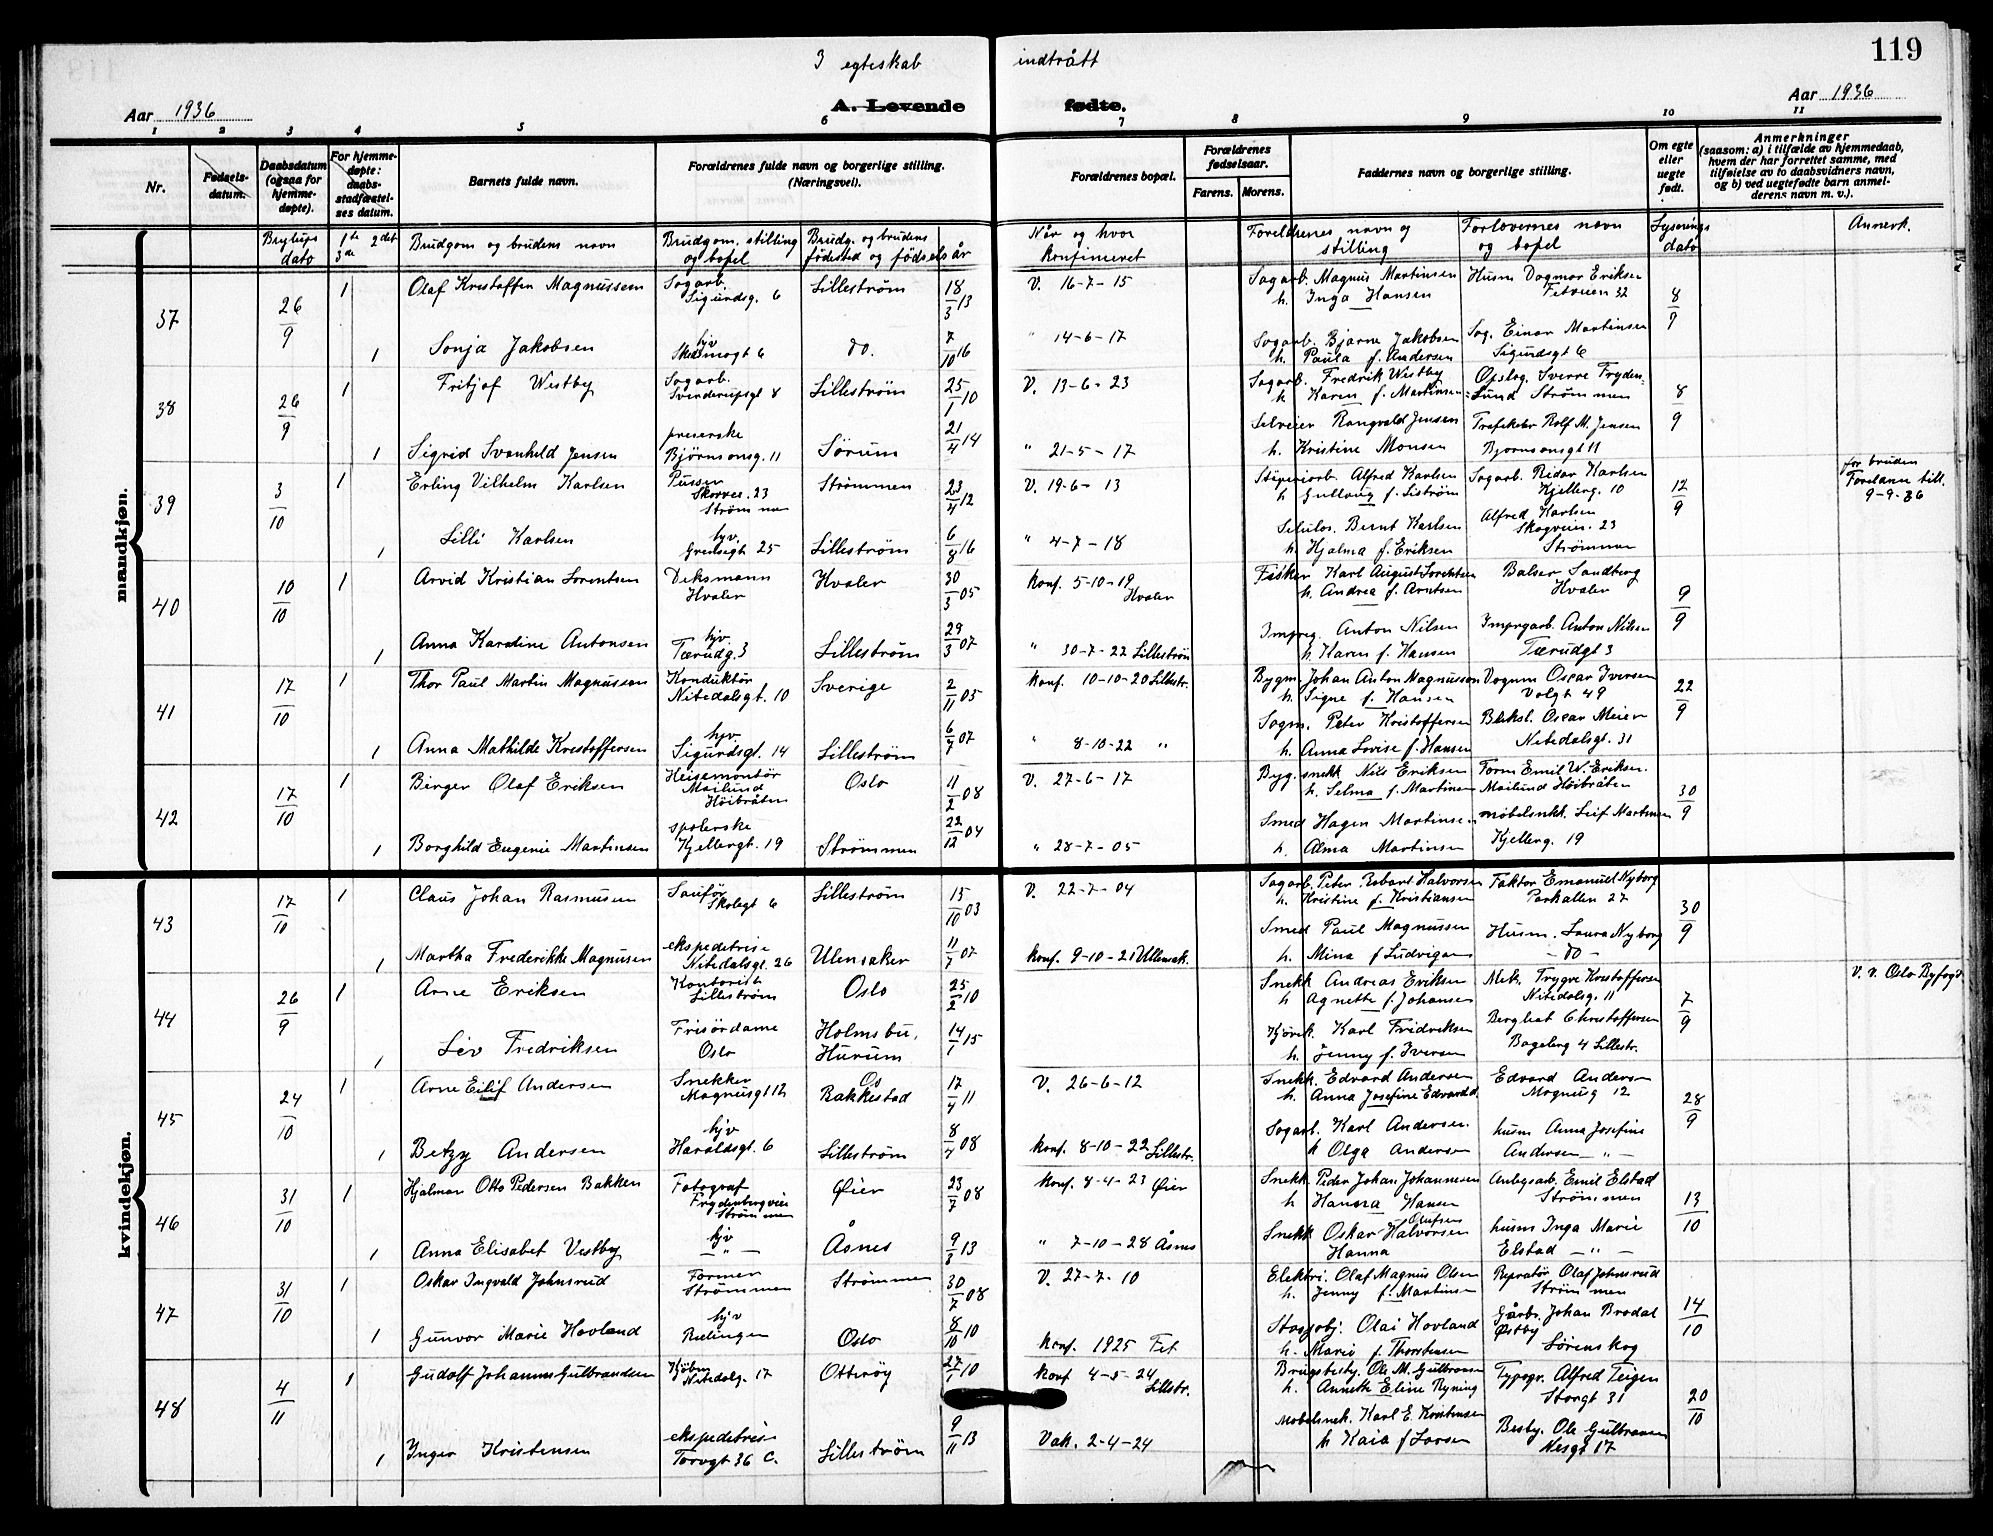 119
3 egteskab indtrått
Aar 1936 A. Levende fødte. Aar 1936
1 2 3 4 5 6 7 8 9 10 11
Nr.
Fødsels-datum.
Daabsdatum (ogsaa for hjemme-døpte).
For hjemme-døpte: daabs-stadfæstel-ses datum.
Barnets fulde navn.
Forældrenes fulde navn og borgerlige stilling. (Næringsvei).
Forældrenes bopæl.
Forældrenes fødselsaar.
Farens. Morens.
Faddernes navn og borgerlige stilling.
Om egte eller uegte født.
Anmerkninger
(saasom: a) i tilfælde av hjemmedaab,
hvem der har forrettet samme, med
tilføielse av to daabsvidners navn,
og b) ved uegtefødte barn anmel-
derens navn m. v.).
Bryllups dato
1ste 2det 3de
Brudgom og brudens navn
Brudgom. stilling og bopel
Brudg. og brudens fødested og fødsels år
Når og hvor konfirmeret
Foreldrenes navn og stilling
Forlovernes navn og bopel
Lysnings dato
Anmerk.
mandkjøn.
37 26/9 1 Olaf Kristoffen Magnussen Sagarb. Sigurdsg. 6 Lillestrøm 18/3 13 V. 16-7-15 Sagarb. Magnus Martinsen h. Inga Hansen Husm Dagmar Eriksen Fetveien 32 8/9
1 Sonja Jakobsen hjv Skedsmogt 6 do. 7/10 16 " 14-6-17 Sagarb. Bjarne Jakobsen h. Paula f. Andersen Sag. Einar Martinsen Sigurdsgt 6
38 26/9 1 Fritjof Westby Sagarb. Svenderupsgt 8 Lillestrøm 25/1 10 V. 13-6-23 Sagarb. Fredrik Westby h. Karen f. Martinsen Opslag. Sverre Fryden-lund Strømmen 8/9
1 Sigrid Svanhild Jensen preserske Bjørnsonsg. 11 Sørum 21/4 14 " 21-5-17 Rangvald Jensen h. Kristine Monsen Rolf M. Jensen Bjørnsonsgt 11
39 3/10 1 Erling Vilhelm Karlsen Pusser 23 Strømmen Strømmen 23/4 12 V. 19-6-13 Alfred Karlsen h Gullaug f. Sagarb. Reidar Karlsen Kjellerg. 10 12/9 for bruden till. 9-9-36
1 Lilli Karlsen hjv. Grensegt 25 Lillestrøm 6/8 16 " 4-7-18 Bernt Karlsen h. Hjalma f. Eriksen Alfred Karlsen Skogvein. 23 Strømmen
40 10/10 1 Arvid Kristian Lorentsen Deksmann Hvaler Hvaler 30/3 05 konf. 5-10-19 Hvaler Fisker Karl August Lorentsen h. Andrea f. Arntsen Balser Sandberg Hvaler 9/9
1 Anna Karoline Antonsen hjv. Tærudg. 3 Lillestrøm 29/3 07 " 30-7-22 Lillestrøm Impreg. Anton Nilsen h. Karen f. Hansen Imprgarb. Anton Nilsen Tærudgt 3
41 17/10 1 Thor Paul Martin Magnussen Konduktør Nitedalsgt. 10 Sverige 2/11 05 konf. 10-10-20 Lillestr. Bygm. Johan Anton Magnusson h. Signe f. Hansen Vognm Oscar Iversen Volgt 49 22/9
1 Anna Mathilde Kristoffersen hjv. Sigurdsgt. 14 Lillestrøm 6/7 07 " 8-10-22 " Sagm. Peter Kristoffersen h. Anna Lovise f. Hansen Bliksl. Oscar Meier Nitedalsgt. 31
42 17/10 1 Birger Olaf Eriksen Heisemontør Mailund Høibråten Oslo 11/2 08 V. 27-6-17 Byg. snekk Nils Eriksen h. Selma f. Martinsen Form Emil W. Eriksen. Mailund Høibråten 30/9
1 Borghild Eugenie Martinsen spolerske Kjellergt. 19 Strømmen 22/12 04 " 28-7-05 Smed Hagen Martinsen h. Alma Martinsen møbelsnkk. Leif Martinsen Kjellerg. 19
kvindekjøn.
43 17/10 1 Claus Johan Rasmussen Skolegt 6 Lillestrøm 15/10 03 V. 22-7-04 Sagarb. Peter Robart Halvorsen h. Kristine f. Kristiansen Faktor Emanuel Nyborg Parkallen 27 30/9
1 Martha Frederikke Magnussen ekspeditrise Nitedalsgt. 26 Ulensaker 11/7 07 konf. 9-10-21 Ullensak. Smed Paul Magnussen h. Mina f Ludvigsen Husm. Laura Nyborg - do -
44 26/9 1 Arne Eriksen Kontorist Lillestrøm Oslo 25/2 10 Snekk Andreas Eriksen h Agnette f. Johansen Mek. Trygve Kristoffersen Nitedalsg. 11 7/9 v. v. Oslo Byfogd
1 Liv Fredriksen Frisørdame Oslo Holmsbu, Hurum 14/1 15 Karl Fridriksen h. Jenny f. Iversen Bergliot Christoffersen 4 Lillestr.
45 24/10 1 Arne Eilif Andersen Snekker Magnusgt 12 Os Rakkestad 17/4 11 V. 26-6-12 Snekk. Edvard Andersen h. Anna Josefine Edvardsd. Edvard Andersen Magnusg 12 28/9
1 Betzy Andersen hjv Haraldsgt. 6 Lillestrøm 8/7 08 konf. 8-10-22 Lillestr. Sagarb. Karl Andersen. h Olga Andersen husm Anna Josefine Andersen - " -
46 31/10 1 Hjalmar Otto Pedersen Bakken Fotograf Frydenbergvei Strømmen Øier 23/7 08 konf. 8-4-23 Øier Snekk. Peder Johan Johannesen h Hanna Hansen Emil Elstad Strømmen 13/10
1 Anna Elisabet Vestby hjv - " - Åsnes 9/3 13 " 7-10-28 Åsnes Snekk Oskar Halvorsen Hanna Olufsen husm Inga Marie Elstad - " -
47 31/10 1 Oskar Ingvald Johnsrud Former Strømmen Strømmen 30/7 08 V. 27-7-10 Elektri. Olaf Magnus Olsen h. Jenny f. Martinsen Repratør Olaf Johnsrud Strømmen 14/10
1 Gunvor Marie Hovland hjv Rælingen Oslo 8/10 10 konf. 1925 Fet Olai Hovland h. Marie f. Thorstensen Gårbr. Johan Brodal Østby Lørenskog
48 4/11 1 Gudolf Johannes Gulbrandsen Kjøbm Nitedalg. 17 Otterøy 27/1 10 konf 4-5-24 Lillstr. Ole M. Gulbransen h. Annette Eline Ryning Typogr. Alfred Teigen Storgt 31 20/10
1 Inger Kristensen ekspeditrise Torvgt 36 C. Lillestrøm 9/11 13 Vak. 2-4-24 Møbelsnek. Karl E. Kristensen h Kaia f Larsen Besty. Ole Gulbransen Nesgt 17